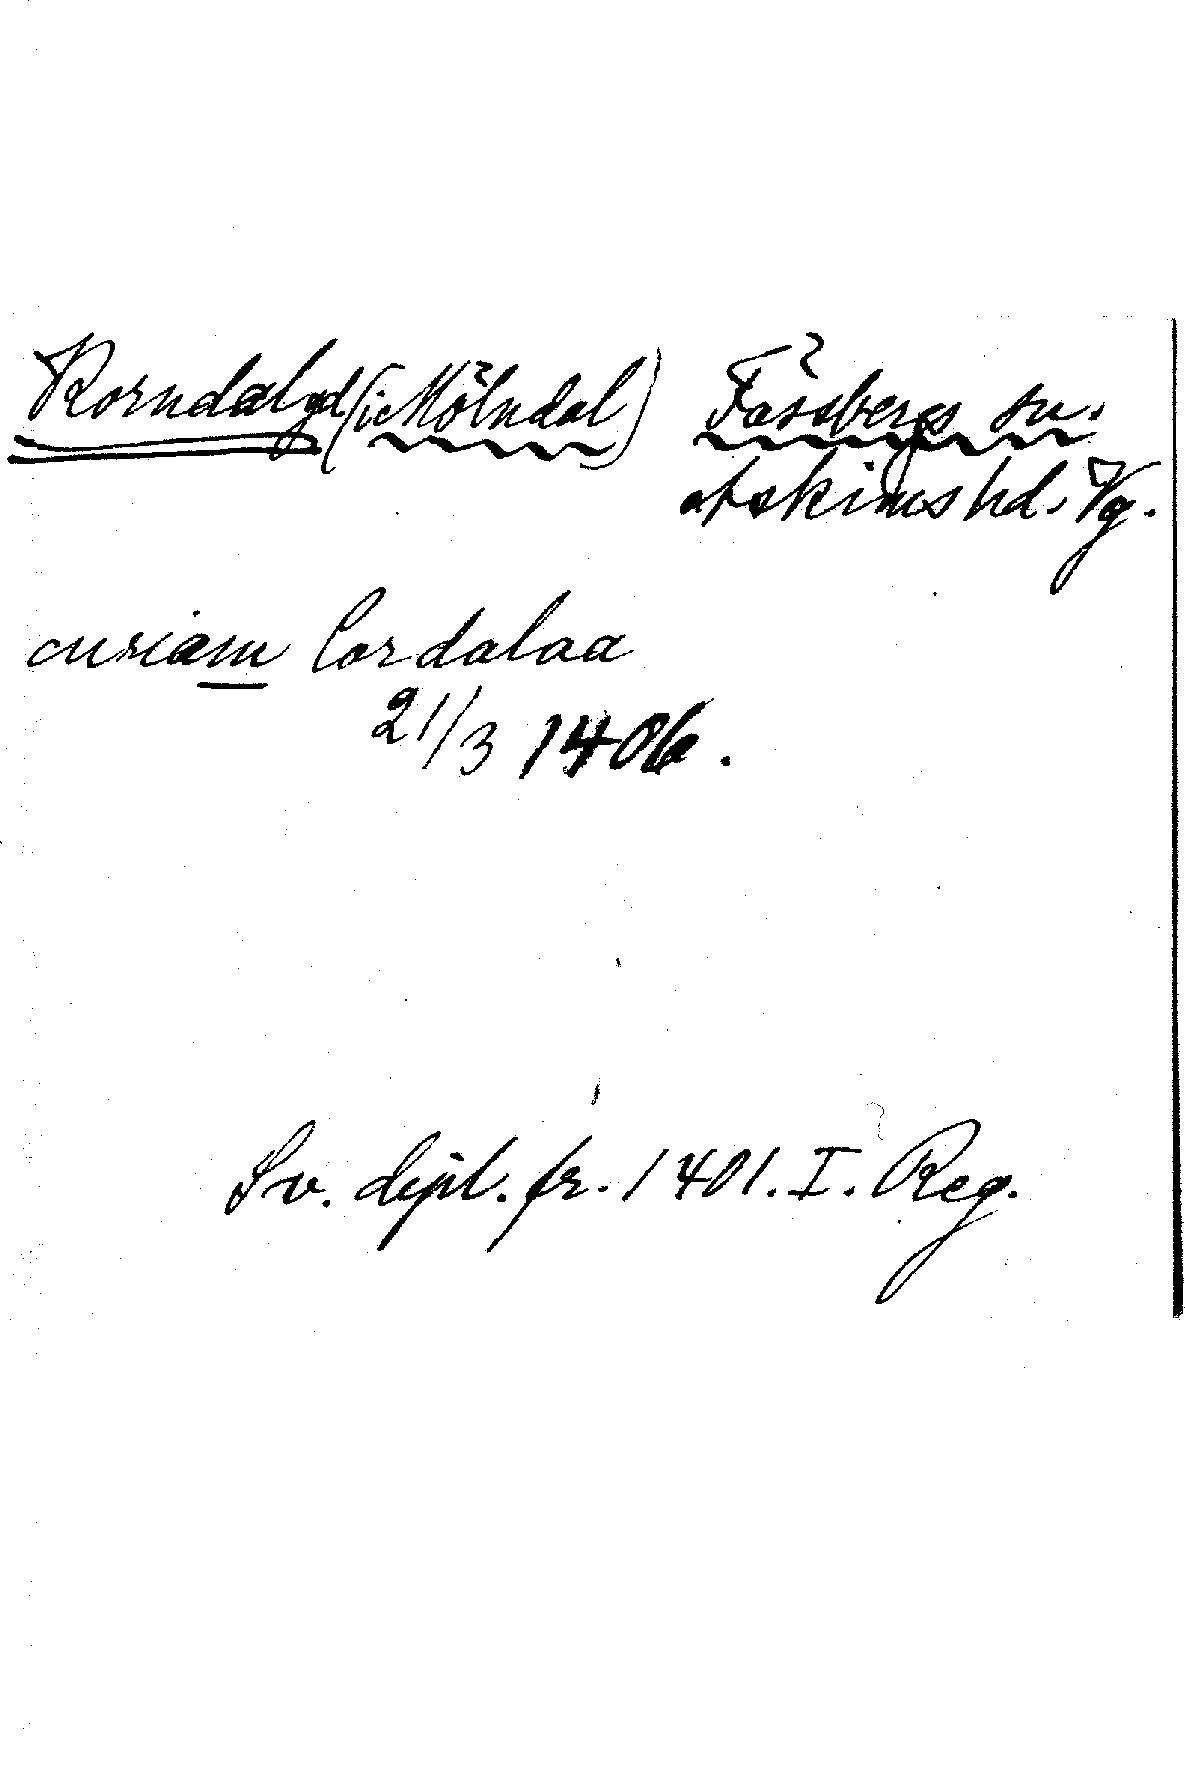 Korndal gd (i Mölndal) Fässbergs sn.
Askims hd. Vg.
curiam Cordalaa
21/3 1406.
Sv. dipl. fr. 1401. I. Reg.